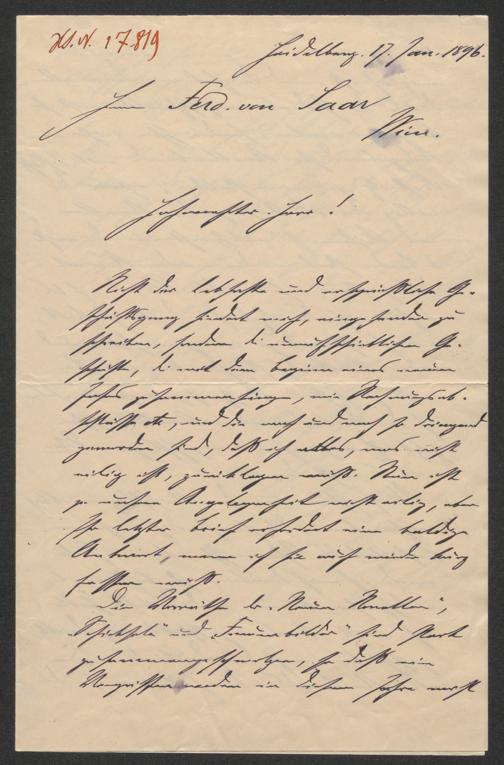 H.I.N. 17819
Heidelberg. 17. Jan. 1896.
Herrn Ferd. von Saar
Wien.
Hochverehrter Herr!
Nicht der lebhafte und ersprießliche Ge-
schäftsgang hindert mich, eingehender zu
schreiben, sondern die unaufschieblichen Ge-
schäfte, die mit dem Beginn eines neuen
Jahres zusammenhängen, wie Rechnungsab-
schlüsse etc, und die nach und nach so dringend
geworden sind, daß ich alles, was nicht
eilig ist, zurücklegen muß. Nun ist
ja unsere Angelegenheit nicht eilig, aber
Ihr letzter Brief erfordert eine baldige
Antwort, wenn ich sie auch wieder kurz
fassen muß.
Die Vorräthe der „Neuen Novellen",
„Schicksale" und „Frauenbilder" sind stark
zusammengeschmolzen, so daß ein
Vergriffenwerden in diesem Jahre nicht